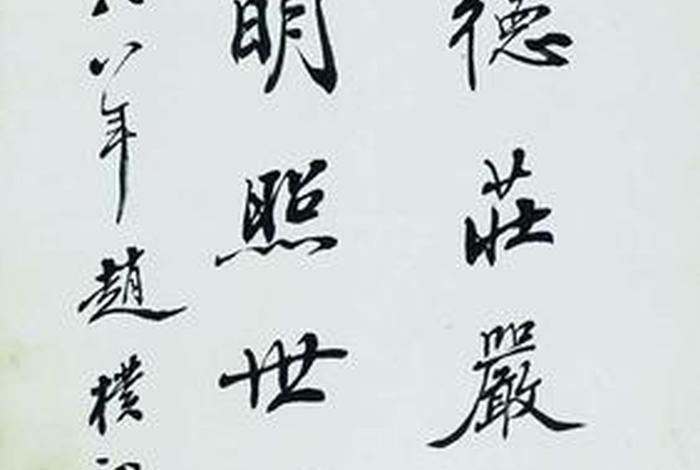 德莊嚴
明照世
八年趙樸